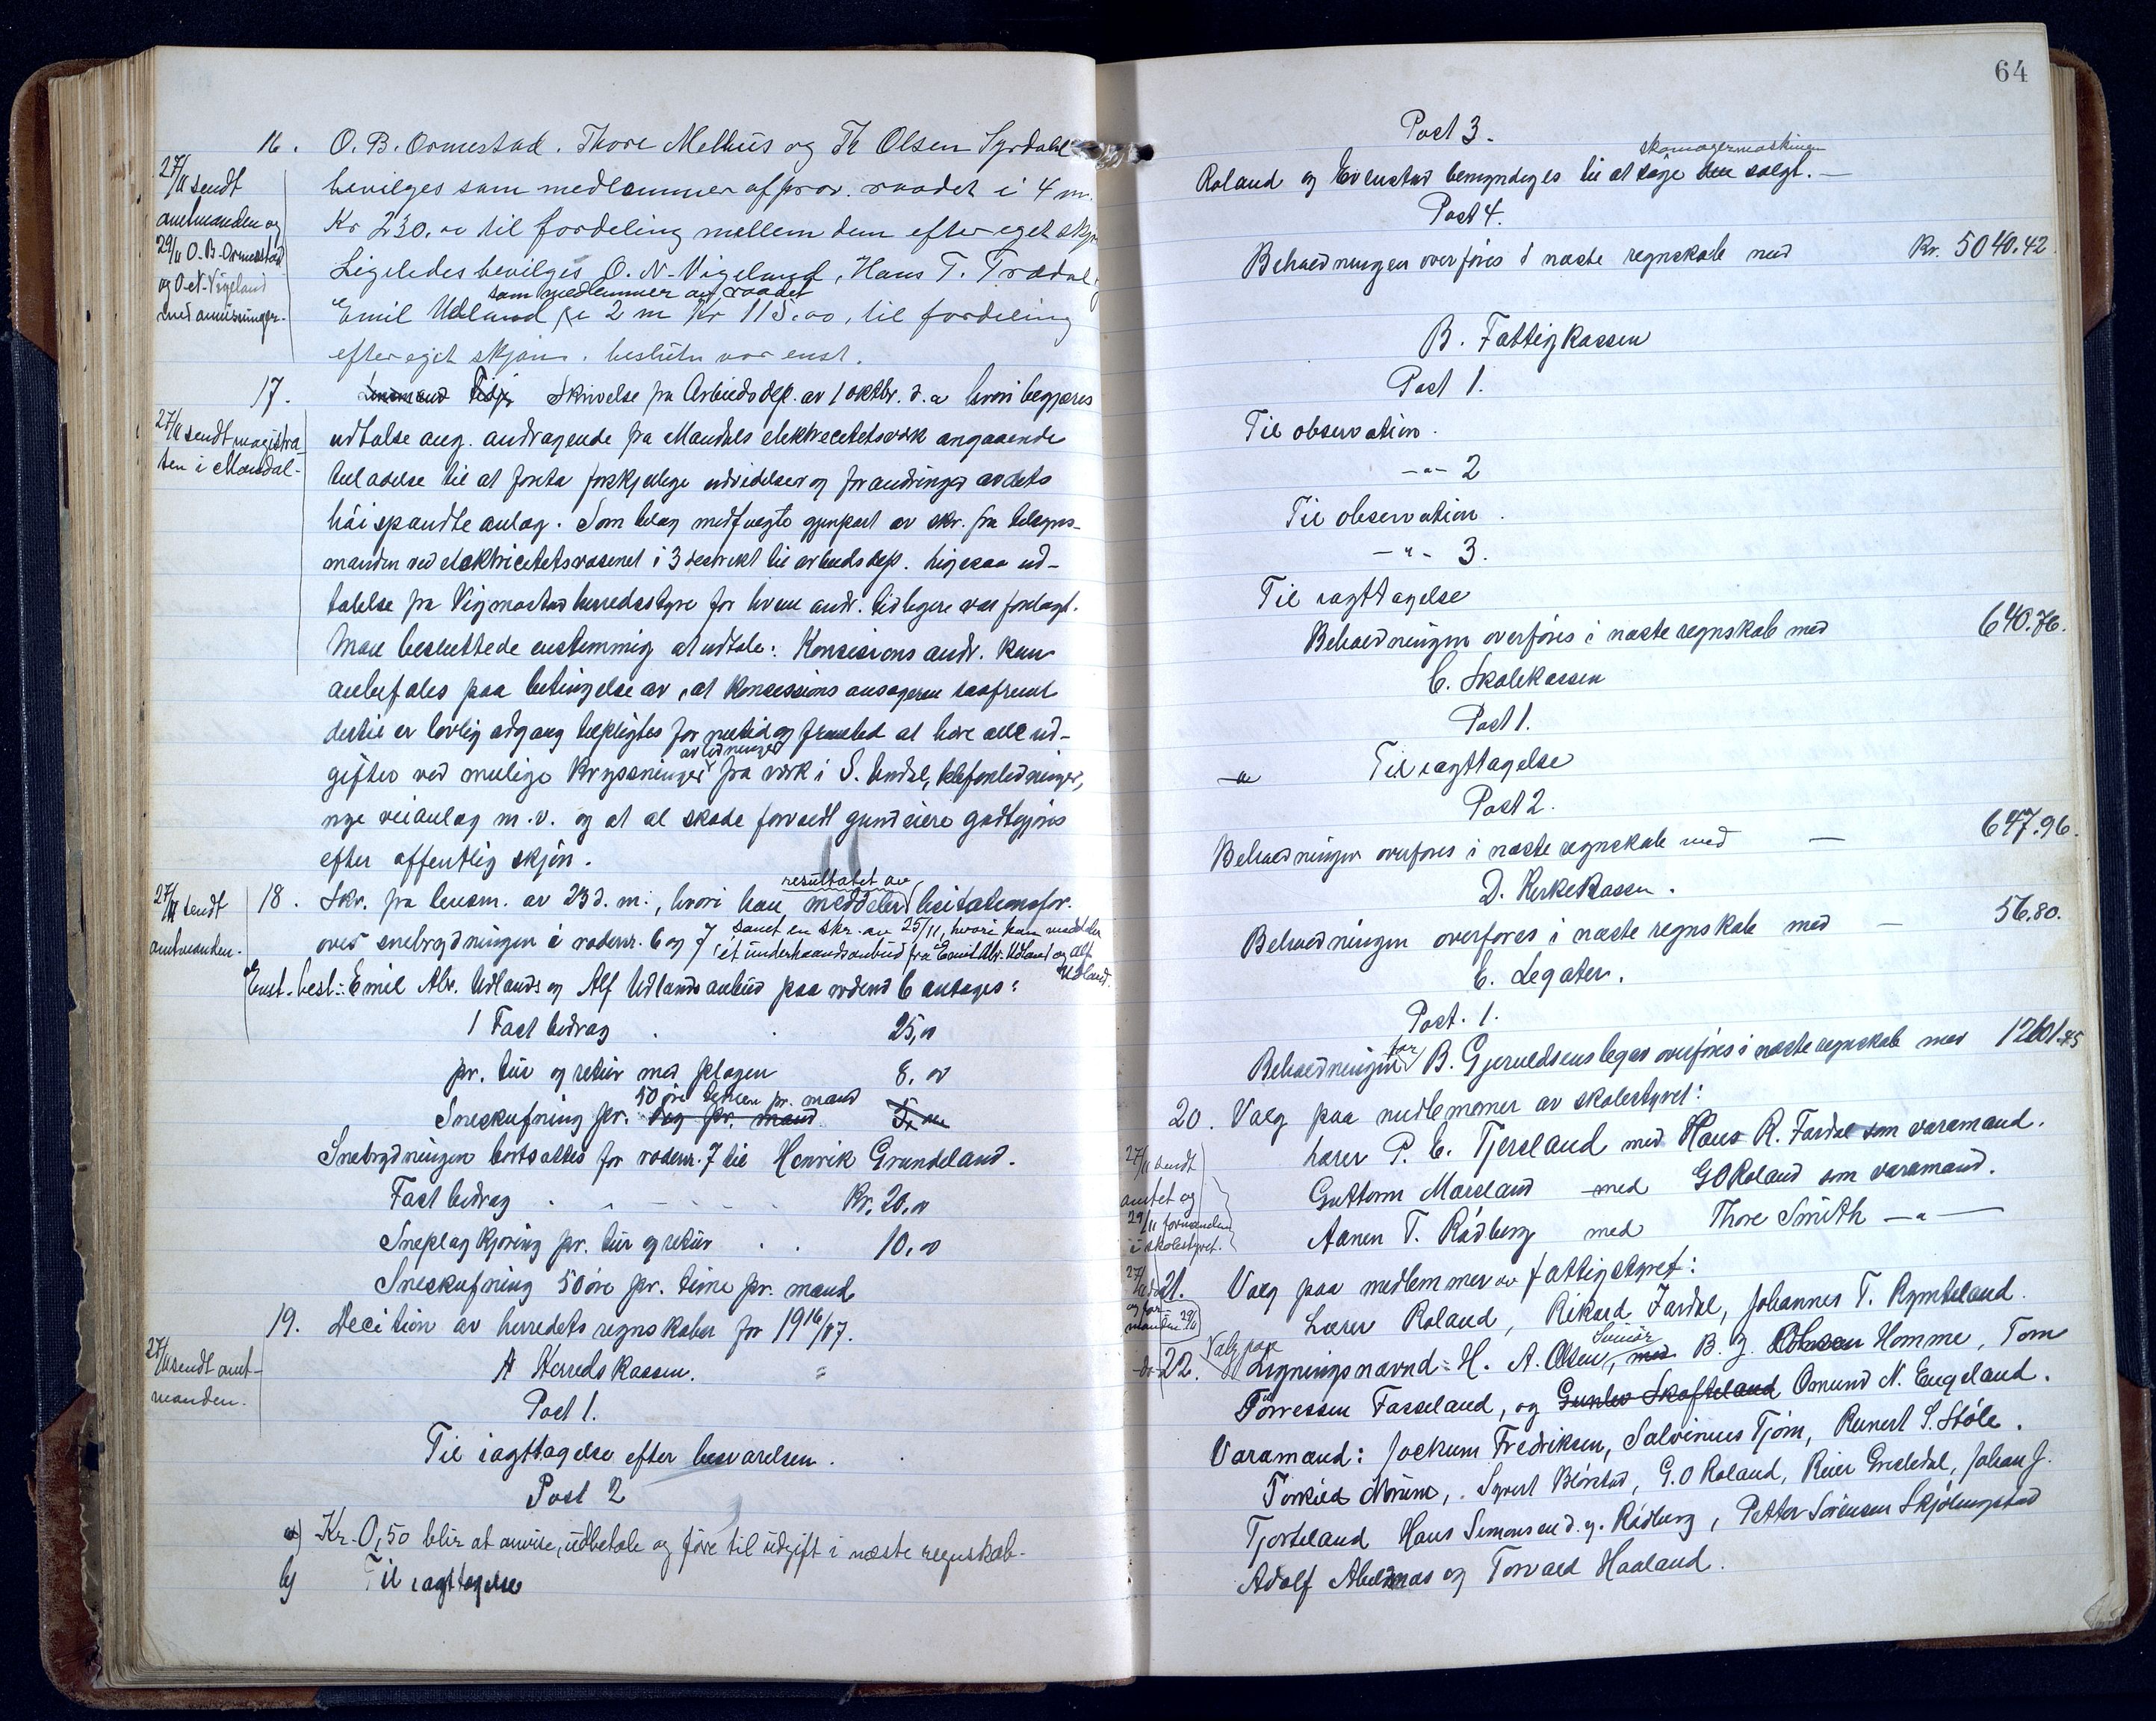 16. O. B. Ormestad. Thore Melhus og Th Olsen Syrdahl
27/11 sendt
amtmanden og
29/11 O. B. Ormestad
og O. N. Vigeland
med anvisninger.
bevilges som medlemmer af prov. raadet i 4 m.
Kr 230.00 til fordeling mellem dem efter eget skjøn
Ligeledes bevilges O. N. Vigeland, Hans T. Trædal,
som medlemmer av raadet
Emil Udland i 2 m Kr 115.00, til fordeling
efter eget skjøn. beslutn var enst.
17. Skrivelse fra Arbeidsdep. av 1 oktbr. d. a hvori begjæres
27/11 sendt magistra-
ten i Mandal.
udtalse ang. andragende fra Mandals elektricitetsverk angaaende
tilladelse til at foreta forskjellige udvidelser og forandringer av dets
høispændte anlæg. Som bilag medfulgte gjenpart av skr. fra tilsyns-
manden ved elektricitetsvæsenet i 3 destrikt til arbeidsdep. ligesaa ud-
talelse fra Vigmostad herredsstyre for hvem andr. tidligere var forelagt.
Man besluttede enstemmig at udtale: Konsesions andr. kan
anbefales paa betingelse av, at konsessions ansøgeren saafremt
dertil er lovlig adgang tilpligtes for nutid og fremtid at bære alle ud-
av ledninger
gifter ved mulige krysninger fra værk i S. Undal, telefonledninger,
nye veianlæg m. v. og at al skade forvoldt grundeiere godtgjøres
efter offentlig skjøn.
27/11 sendt
amtmanden.
resultatet av
18. Skr. fra lensm. av 23 d. m:, hvori han meddeler licitationsfor.
over snebrydningen i rodenr. 6 og 7 samt en skr. av 25/11, hvori han meddeler
et underhaandsanbud fra Emil Abr. Udland og Alf
Udland.
Enst. besl.: Emil Abr. Udlands og Alf Udlands anbud paa rodens 6 antages:
1 Fast bidrag . . 25,00
pr. tur og retur med plogen 8.00
50 øre timen pr. mand
Sneskufning pr. Dag pr. mand 5,00
Snebrydningen bortsattes for rodenr. 7 til Henrik Grundeland.
Fast bidrag . . - - - . Kr. 20,00
Sneplogkjøring pr. tur og retur . . 10,00
Sneskufning 50 øre pr. time pr. mand
19. Decition av herredets regnskaber for 1916/17.
27/11 sendt amt-
manden.
A Herredskassen.
Post 1.
Til iagttagelse efter besvarelsen.
Post 2
a) Kr. 0,50 blir at anvise, udbetale og føre til udgift i næste regnskab.
b) Til iagttagelse
64
Post 3.
skomagermaskinen
Roland og Evenstad bemyndiges til at søge den solgt. —
Post 4.
Beholdningen overføres i næste regnskab med Kr. 5040.42.
B. Fattigkassen
Post 1.
Til observation.
-"- 2
Til observation.
-"- 3.
Til iagttagelse
Beholdningen overføres i næste regnskab med 640.76.
C. Skolekassen
Post 1.
a Til iagttagelse
Post 2.
Beholdningen overføres i næste regnskab med — 647.96.
D. Kirkekassen.
Beholdningen overføres i næste regnskab med — 56.80.
E. Legater.
Post. 1.
for
Beholdningen B. Gjeruldsens legat overføres i næste regnskab med 12601.45
20. Valg paa medlemmer av skolestyret:
27/11 sendt
amtet og
29/11 formanden
i skolestyret.
lærer P. C. Tjersland med Hans R. Fardal som varamand.
Guttorm Marsland med G O Roland som varamand.
Aanen T. Rødberg med Thore Smith —"—
21. Valg paa medlemmer av fattigstyret:
27/11
og for-
manden 29/11
Lærer Roland, Rikard Fardal, Johannes T. Rymteland.
Valg paa
Junior
-do- 22. Ligningsnævnd: H. A. Olsen, med B. J. Homme, Tom
Tørressen Fasseland, og Gunlev Skofteland Omund N. Eugeland.
Varamænd: Jockum Fredriksen, Salvinius Tjøm, Reinert S. Støle.
Torkild Mørem, Syvert Birkstad, G. O Roland, Reier Gresledal, Johan J.
Tjorteland Hans Simonsen d. y. Rødberg, Petter Sørensen Skjølingstad
Adolf Abelsnes og Torvald Haaland.